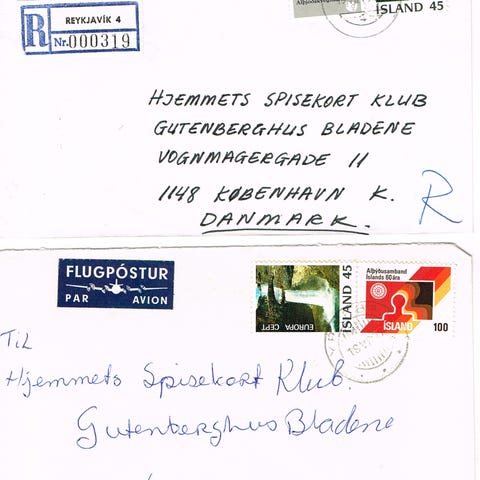 R
REYKJAVÍK 4
Nr.000319
ÍSLAND 45
HJEMMETS SPISEKORT KLUB
GUTENBERGHUS BLADENE
VOGNMAGERGADE 11
1148 KØBENHAVN K.
DANMARK.
R
FLUGPÓSTUR
PAR AVION
EUROPA CEPT
ÍSLAND 45
Alþýðusamband
Íslands 60 ára
ÍSLAND
100
Til
Hjemmets Spisekort Klub.
Gutenberghus Bladene